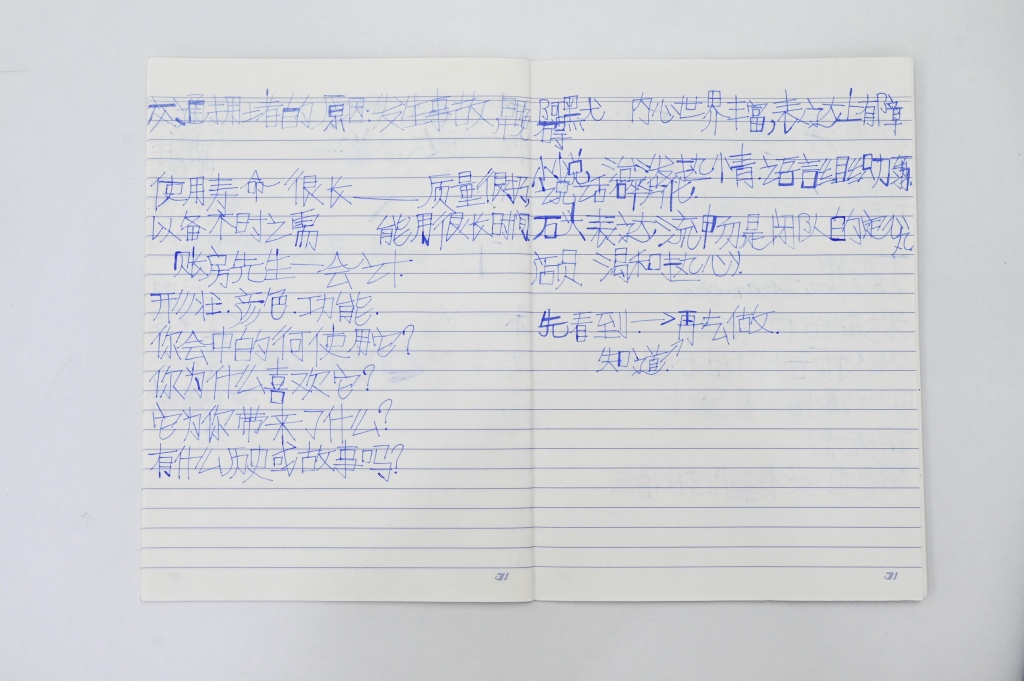 交通拥堵的原因:发生事故,
使用寿命很长——质量很好
以备不时之需 能用很长时间
账房先生——会计
形状.颜色.功能.
你会中的何使用它?
你为什么喜欢它?
它为你带来了什么?
有什么历史或故事吗?
31
阿黑犬 内心世界丰富,表达上有障
小说,活泼热情.语言组织力弱.
说话碎片化.
石头表达流畅是团队的
活员 温和热心.
先看到→再去做.
知道
31